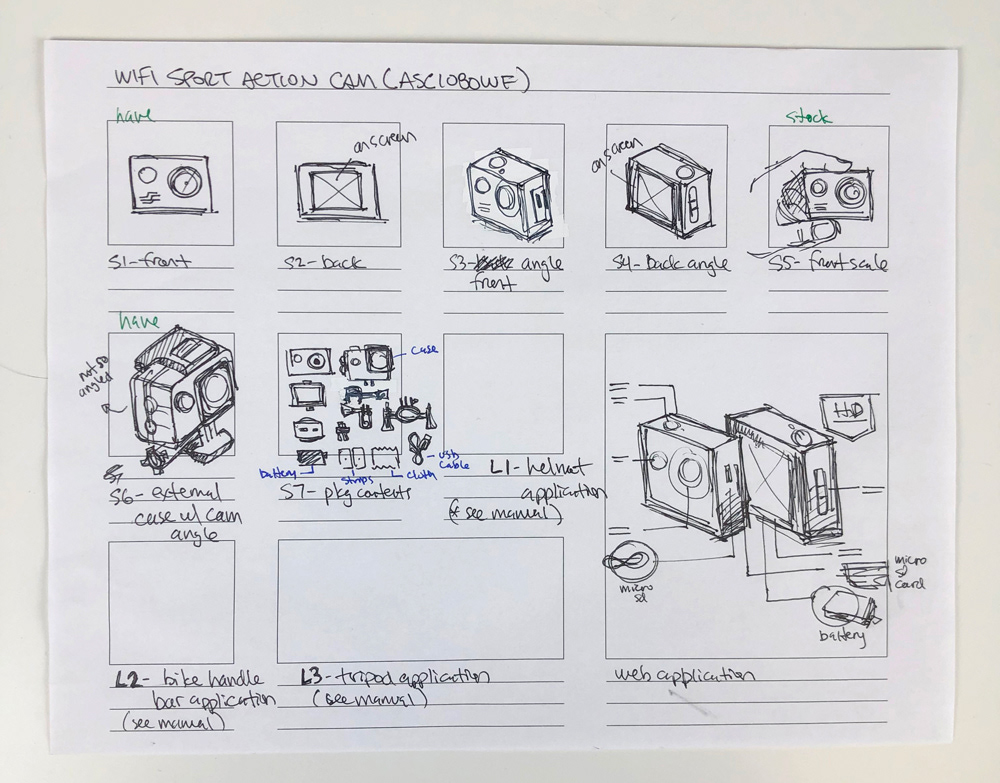 WIFI SPORT ACTION CAM (ASCIOBOWF)
have
stock
onscreen
onscreen
S1-front
S2-back
S3-back angle
front
S4-Back angle
S5-front scale
have
not so
angled
case
battery
straps
cloth
USB
cable
S6-external
case w/ cam
angle
S7-pkg contents
L1-helmet
application
(* see manual)
HD
micro
sd
micro
SD
card
battery
L2-bike handle
bar application
(see manual)
L3-tripod application
(see manual)
web application